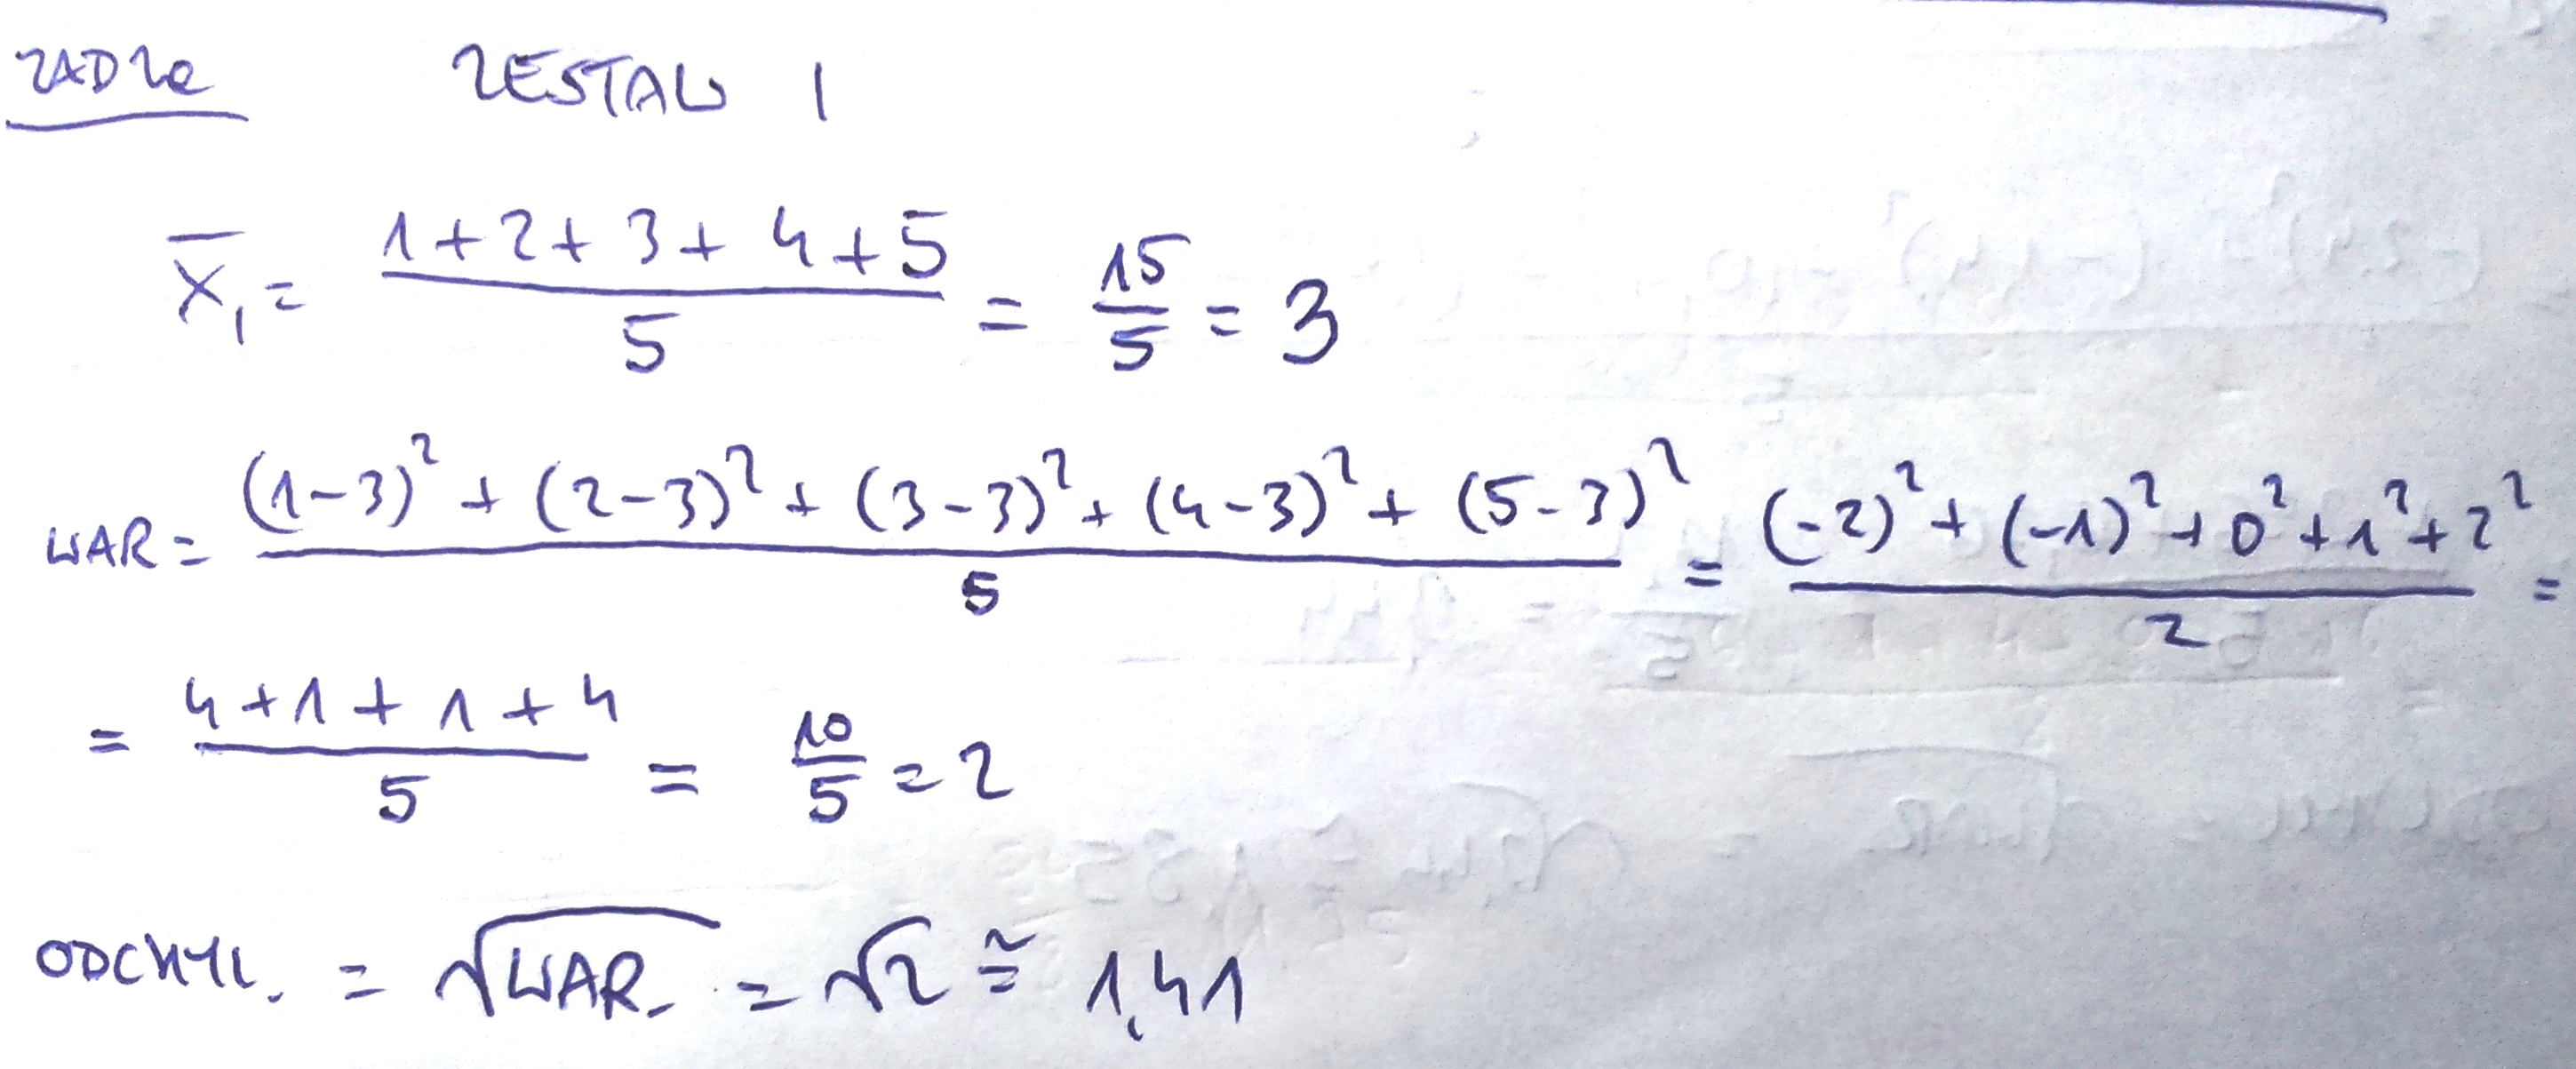 ZAD 2a ZESTAW 1
x̄₁ = (1+2+3+4+5)/5 = 15/5 = 3
WAR = ((1-3)² + (2-3)² + (3-3)² + (4-3)² + (5-3)²)/5 = ((-2)² + (-1)² + 0² + 1² + 2²)/2 =
= (4+1+1+4)/5 = 10/5 = 2
ODCHYL. = √WAR. = √2 ≅ 1,41